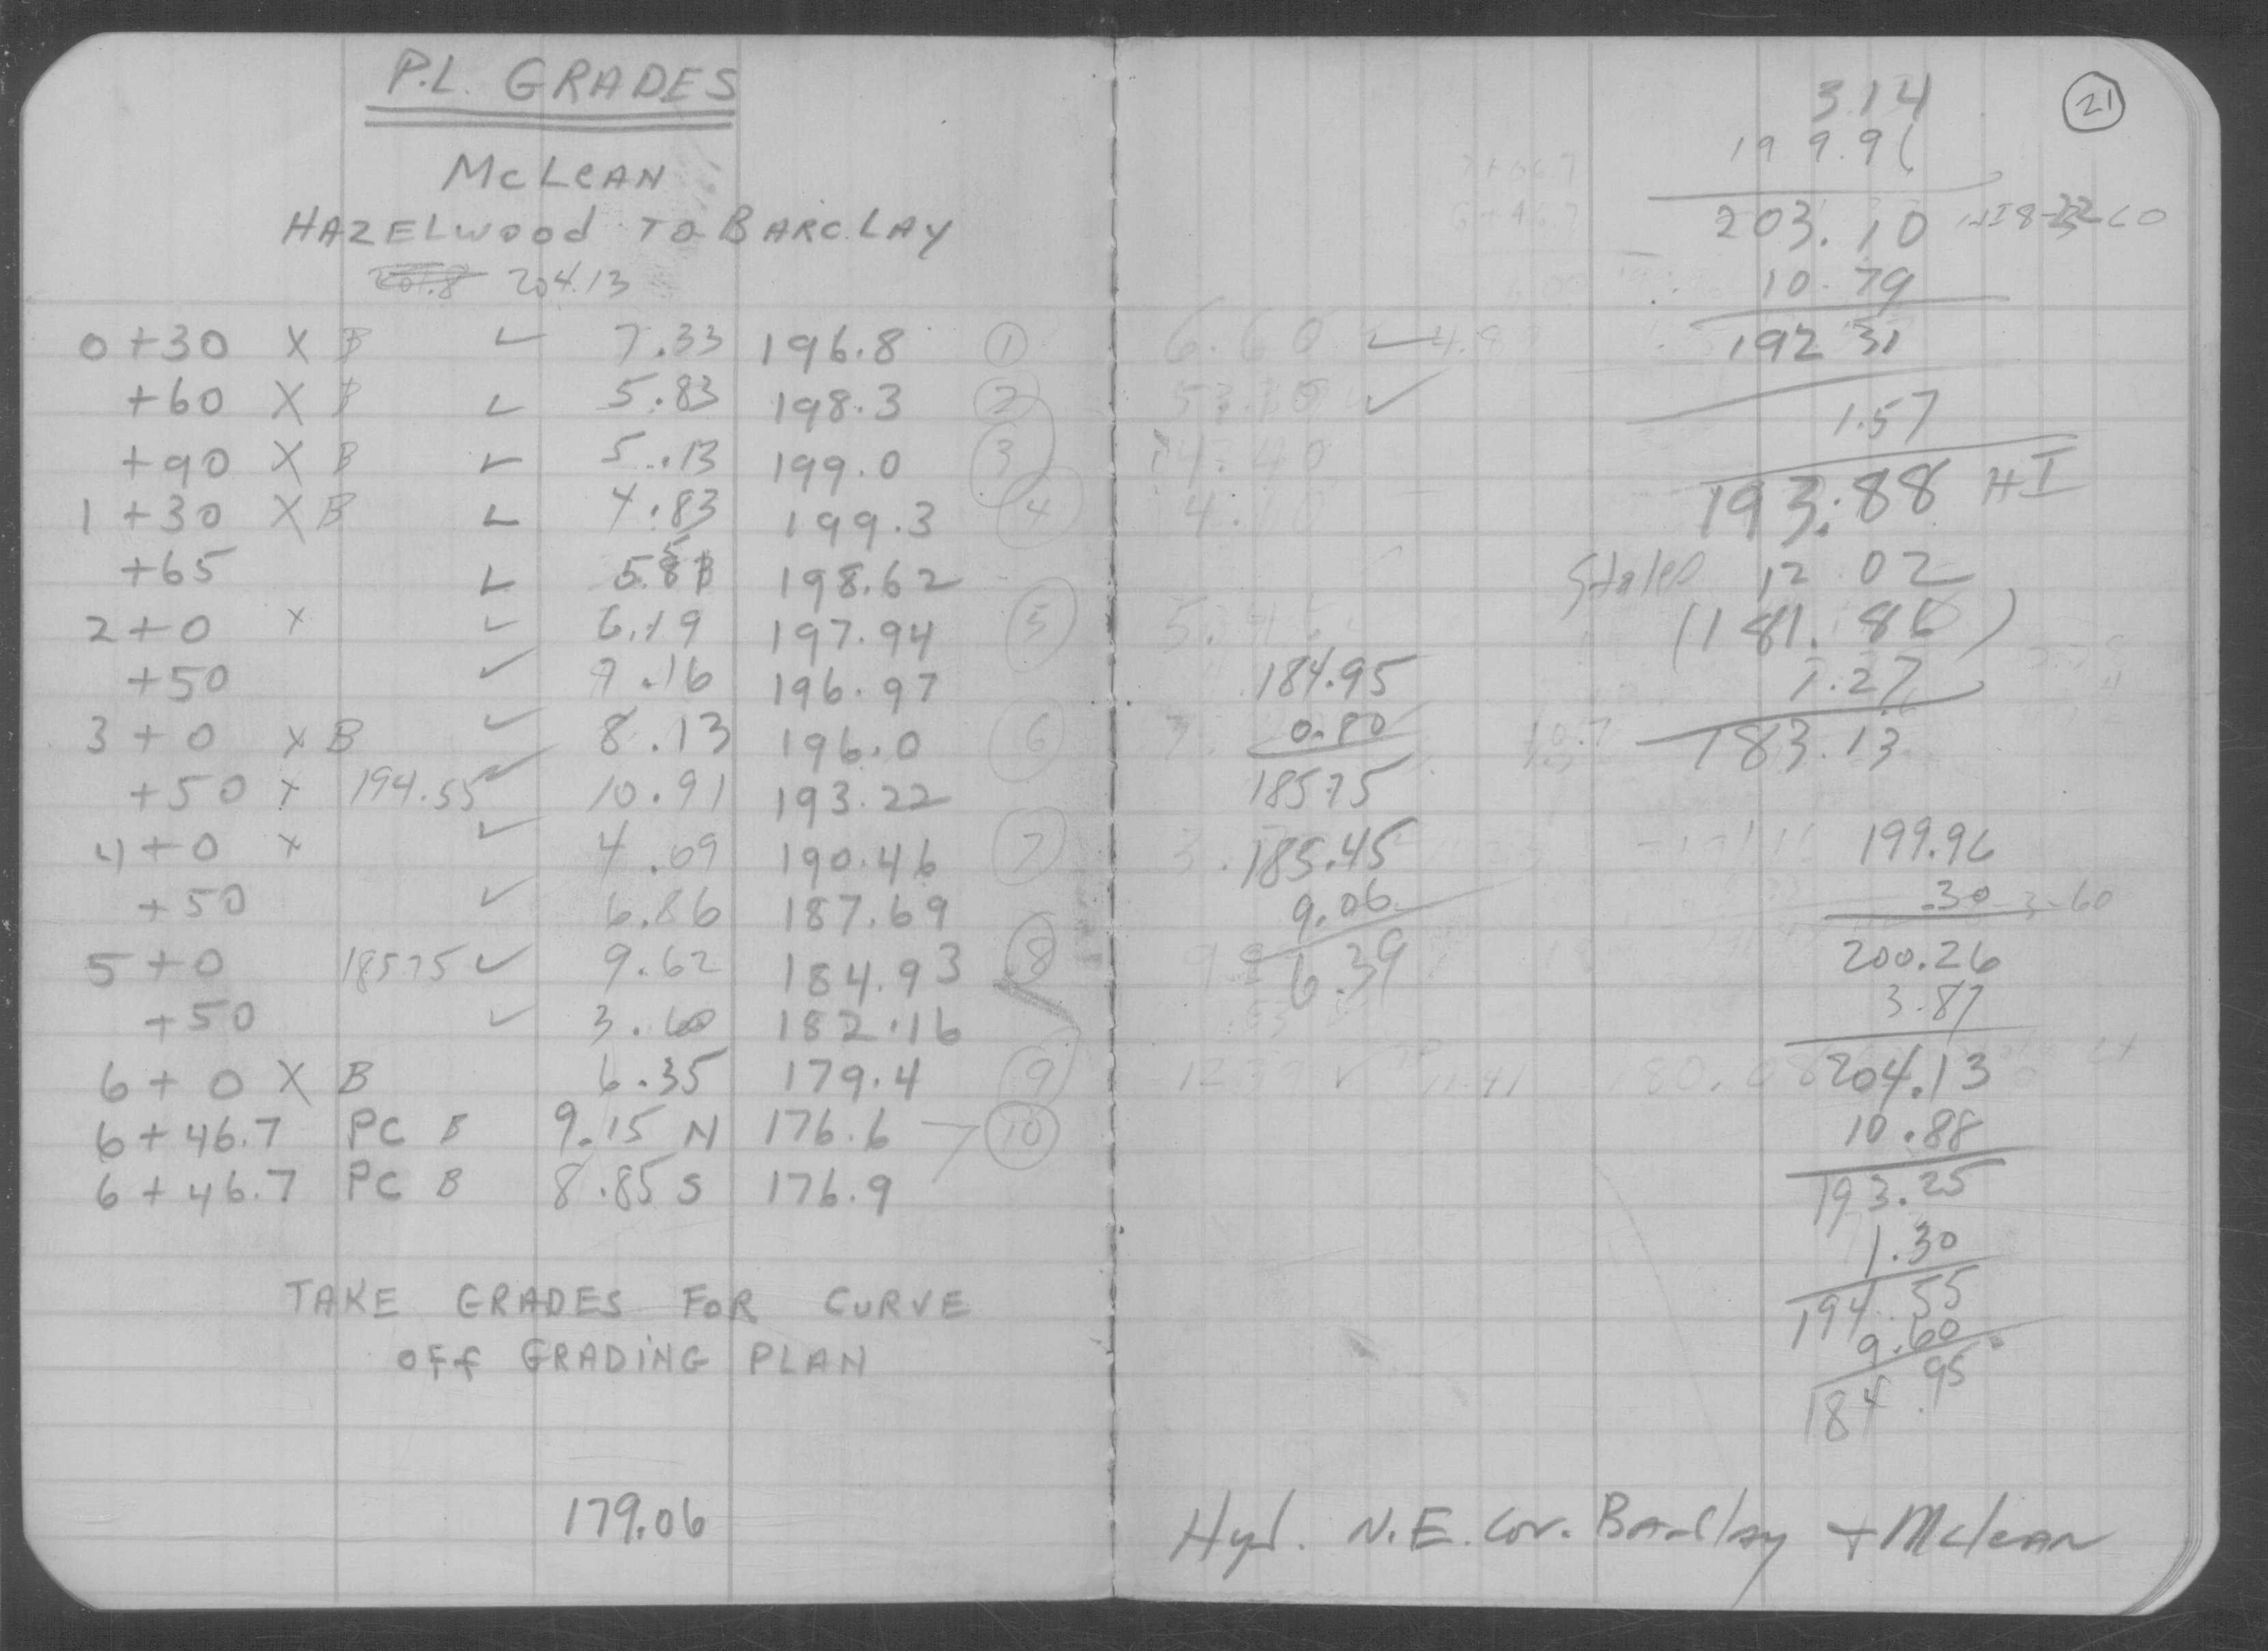 P.L. GRADES
McLEAN
HAZELWOOD TO BARCLAY
204.13
0+30 X B ✓ 7.33 196.8 ①
+60 X B ✓ 5.83 198.3 ②
+90 X B ✓ 5.13 199.0 ③
1+30 X B ✓ 4.83 199.3 ④
+65 ✓ 198.62
2+0 X ✓ 6.19 197.94 ⑤
+50 ✓ 7.16 196.97
3+0 X B ✓ 8.13 196.0 ⑥
+50 X 194.55 ✓ 10.91 193.22
4+0 X ✓ 4.09 190.46 ⑦
+50 ✓ 6.86 187.69
5+0 185.75 ✓ 9.62 184.93 ⑧
+50 ✓ 3.60 182.16
6+0 X B 6.35 179.4 ⑨
6+46.7 PC B 9.15 N 176.6 ⑩
6+46.7 PC B 8.85 S 176.9
TAKE GRADES FOR CURVE
OFF GRADING PLAN
179.06
21
3.14
199.96
203.10
10.79
192.31
1.57
193.88 HI
12.02
(181.86)
1.27
183.13
6.60 ✓
4.40
184.95
0.80
185.75
185.45
9.06
6.39
199.96
.30
200.26
3.87
204.13
10.88
193.25
1.30
194.55
9.60
184.95
Hyd. N.E. Cor. Barclay + McLean